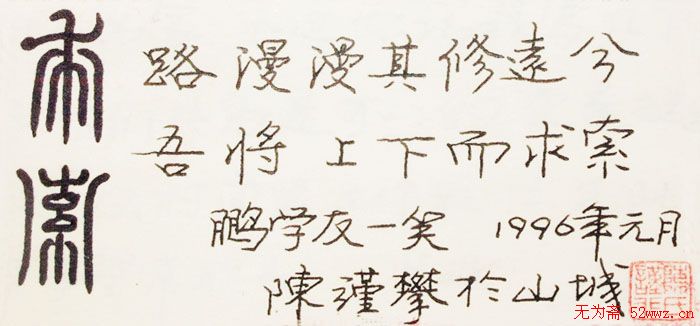 求索
路漫漫其修遠兮
吾将上下而求索
鹏学友一笑 1996年元月
陳瑾攀於山城
无为斋 52wwz.cn